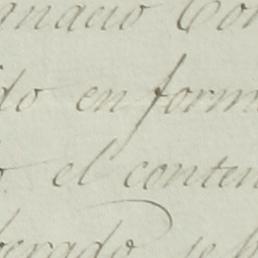 gnacio Con
do en form
el conten
berado, se h